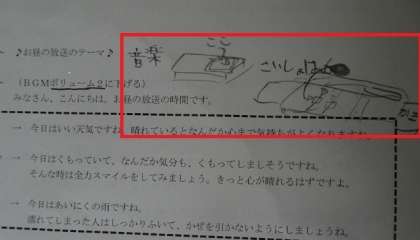 ♪お昼の放送のテーマ♪
音楽
ここ
さいしょは
(BGMボリューム2に下げる)
みなさん、こんにちは。お昼の放送の時間です。
→ 今日はいい天気ですね。晴れているとなんだか心まで気持ちがよくなりますね。
→ 今日はくもっていて、なんだか気分も、くもってしましそうですね。
そんな時は全力スマイルをしてみましょう。きっと心が晴れるはずですよ。
→ 今日はあいにくの雨ですね。
濡れてしまった人はしっかりふいて、かぜを引かないようにしましょうね。